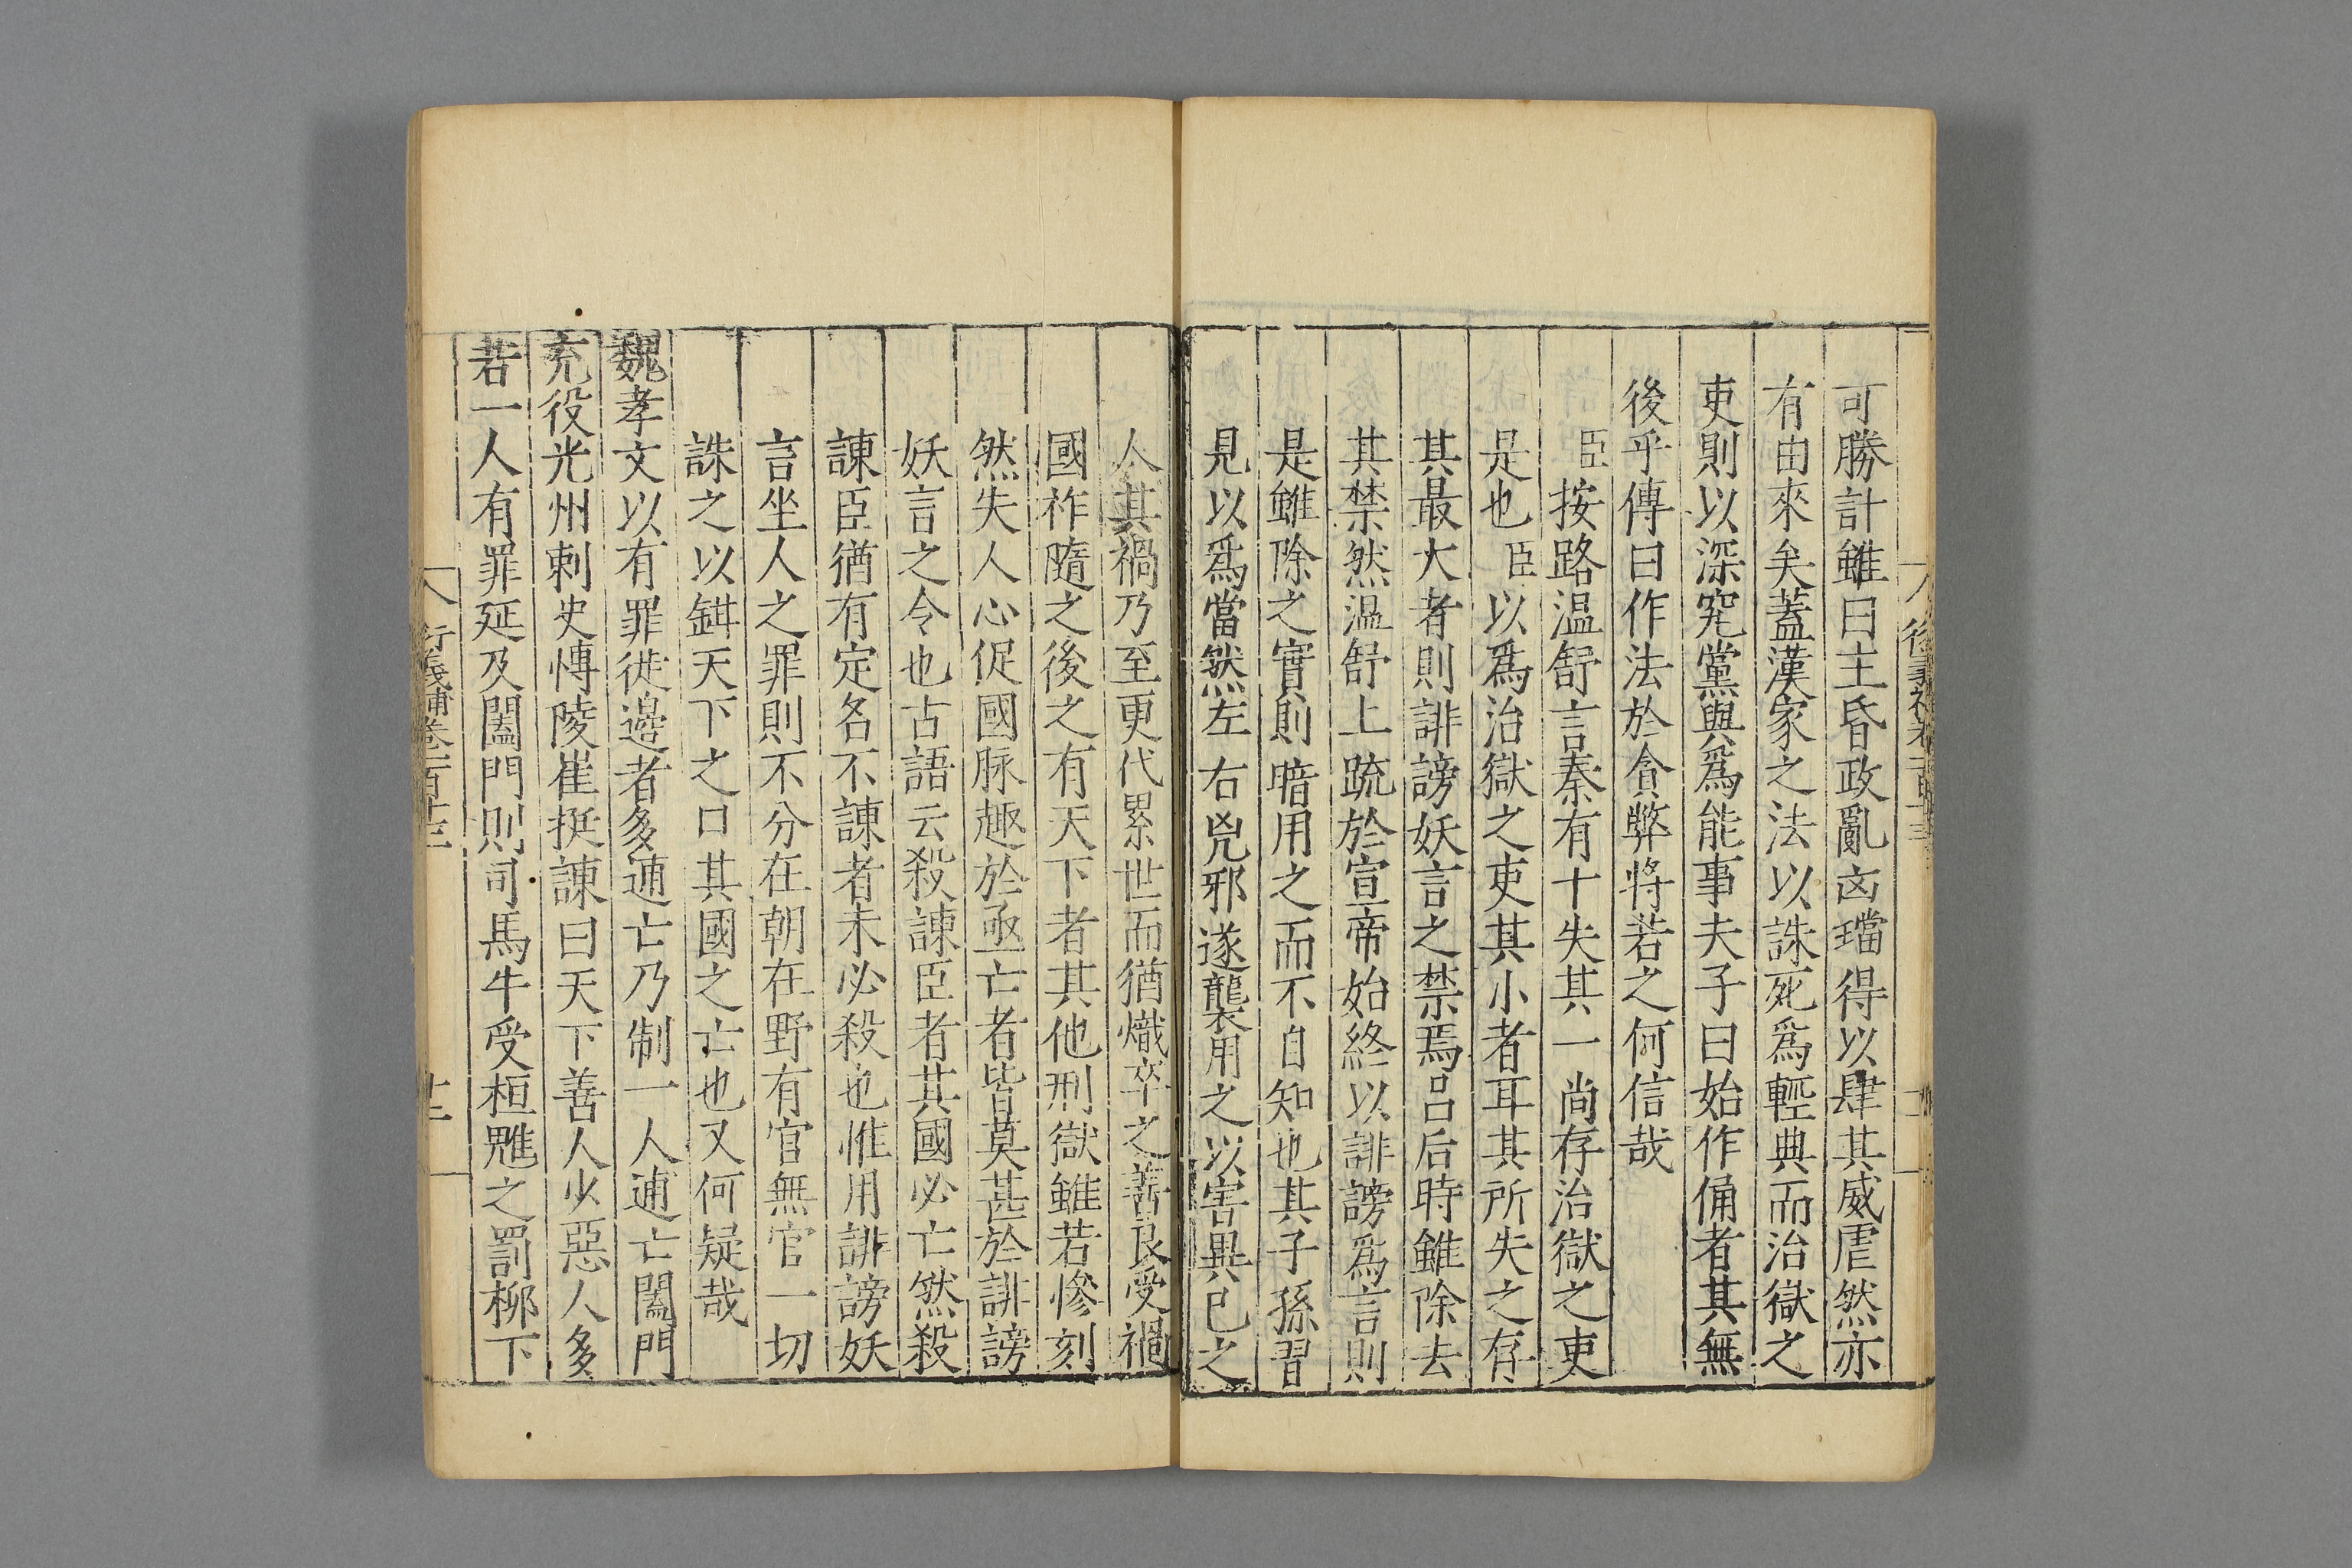 可勝計雖曰主昏政亂凶璫得以肆其威虐然亦
有由來矣蓋漢家之法以誅死爲輕典而治獄之
吏則以深究黨與爲能事夫子曰始作俑者其無
後乎傳曰作法於貪弊將若之何信哉
臣按路温舒言秦有十失其一尚存治獄之吏
是也臣以爲治獄之吏其小者耳其所失之存
其最大者則誹謗妖言之禁焉呂后時雖除去
其禁然温舒上疏於宣帝始終以誹謗爲言則
是雖除之實則暗用之而不自知也其子孫習
見以爲當然左右兇邪遂襲用之以害異已之
人其禍乃至更代累世而猶熾卒之善良受禍
國祚隨之後之有天下者其他刑獄雖若慘刻
然失人心促國脉趣於亟亡者皆莫甚於誹謗
妖言之令也古語云殺諫臣者其國必亡然殺
諫臣猶有定名不諫者未必殺也惟用誹謗妖
言坐人之罪則不分在朝在野有官無官一切
誅之以鉗天下之口其國之亡也又何疑哉
魏孝文以有罪徙邉者多逋亡乃制一人逋亡闔門
充役光州刺史博陵崔挺諫曰天下善人少惡人多
若一人有罪延及闔門則司馬牛受桓魋之罰柳下
衍義補卷一百十三